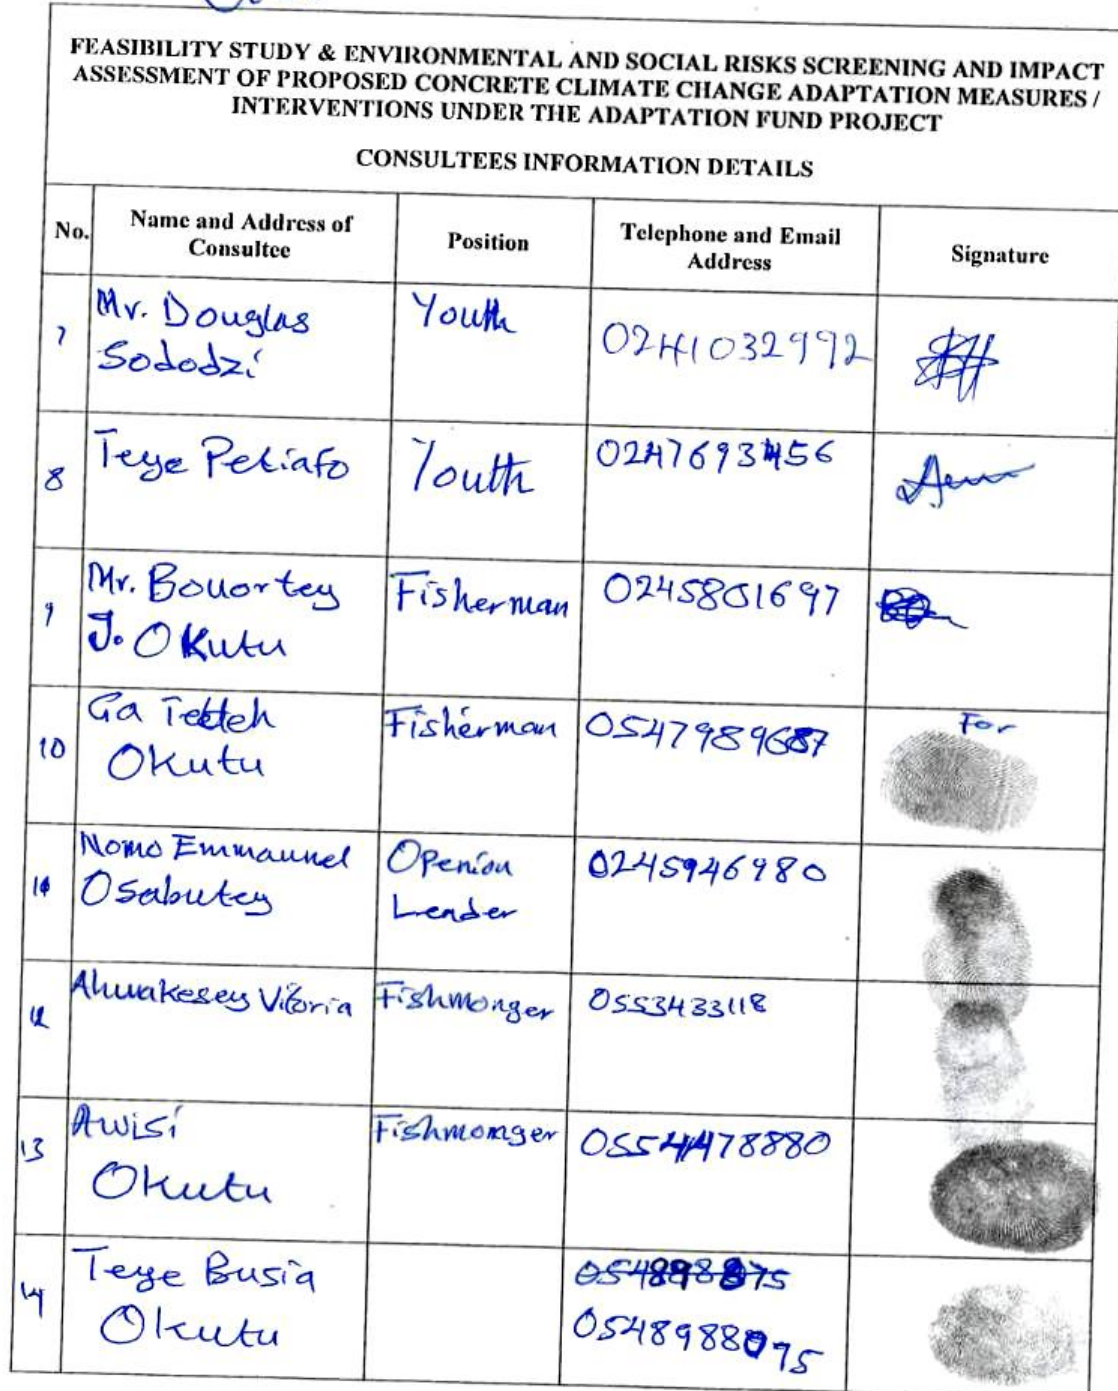 FEASIBILITY STUDY & ENVIRONMENTAL AND SOCIAL RISKS SCREENING AND IMPACT
ASSESSMENT OF PROPOSED CONCRETE CLIMATE CHANGE ADAPTATION MEASURES /
INTERVENTIONS UNDER THE ADAPTATION FUND PROJECT
CONSULTEES INFORMATION DETAILS
No. Name and Address of Consultee Position Telephone and Email Address Signature
7 Mr. Douglas Youth 0241032992
Sododzi
8 Teye Petiafo Youth 0247693456
9 Mr. Bouortey Fisherman 0245801697
J. Okutu
10 Ga Tetteh Fisherman 0547989687 For
Okutu
11 Nomo Emmaunel Openion 0245946980
Osabutey Leader
12 Ahuakesey Vitoria Fishmonger 0553433118
13 Awisi Fishmonger 0554478880
Okutu
14 Teye Busia
Okutu 0548988075